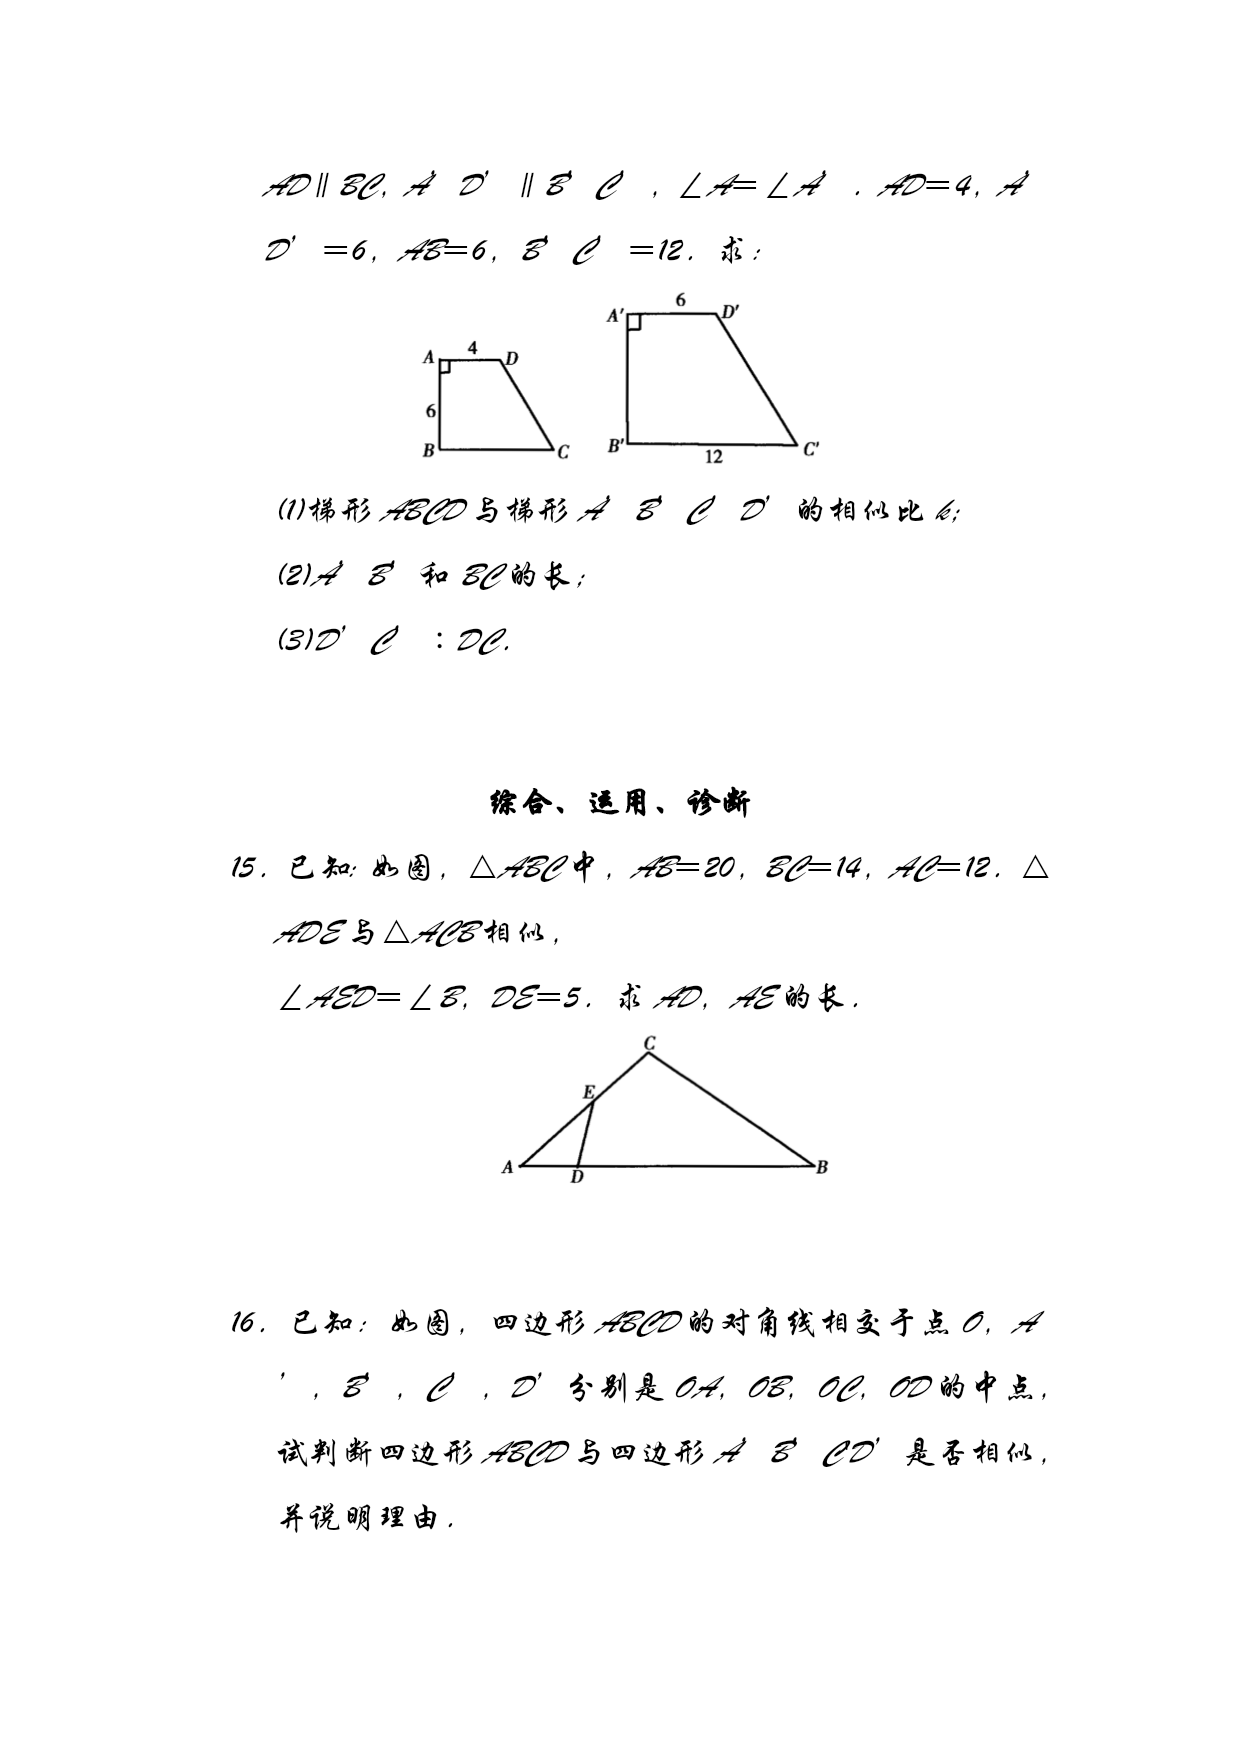 AD∥BC，A′D′∥B′C′，∠A=∠A′．AD=4，A′
D′=6，AB=6，B′C′=12．求：
A 4 D
6
B C
A′ 6 D′
B′ 12 C′
(1)梯形ABCD与梯形A′B′C′D′的相似比k;
(2)A′B′和BC的长；
(3)D′C′∶DC．
综合、运用、诊断
15．已知：如图，△ABC中，AB=20，BC=14，AC=12．△
ADE与△ACB相似，
∠AED=∠B，DE=5．求AD，AE的长．
C
E
A D B
16．已知：如图，四边形ABCD的对角线相交于点O，A
′，B′，C′，D′分别是OA，OB，OC，OD的中点，
试判断四边形ABCD与四边形A′B′CD′是否相似，
并说明理由．